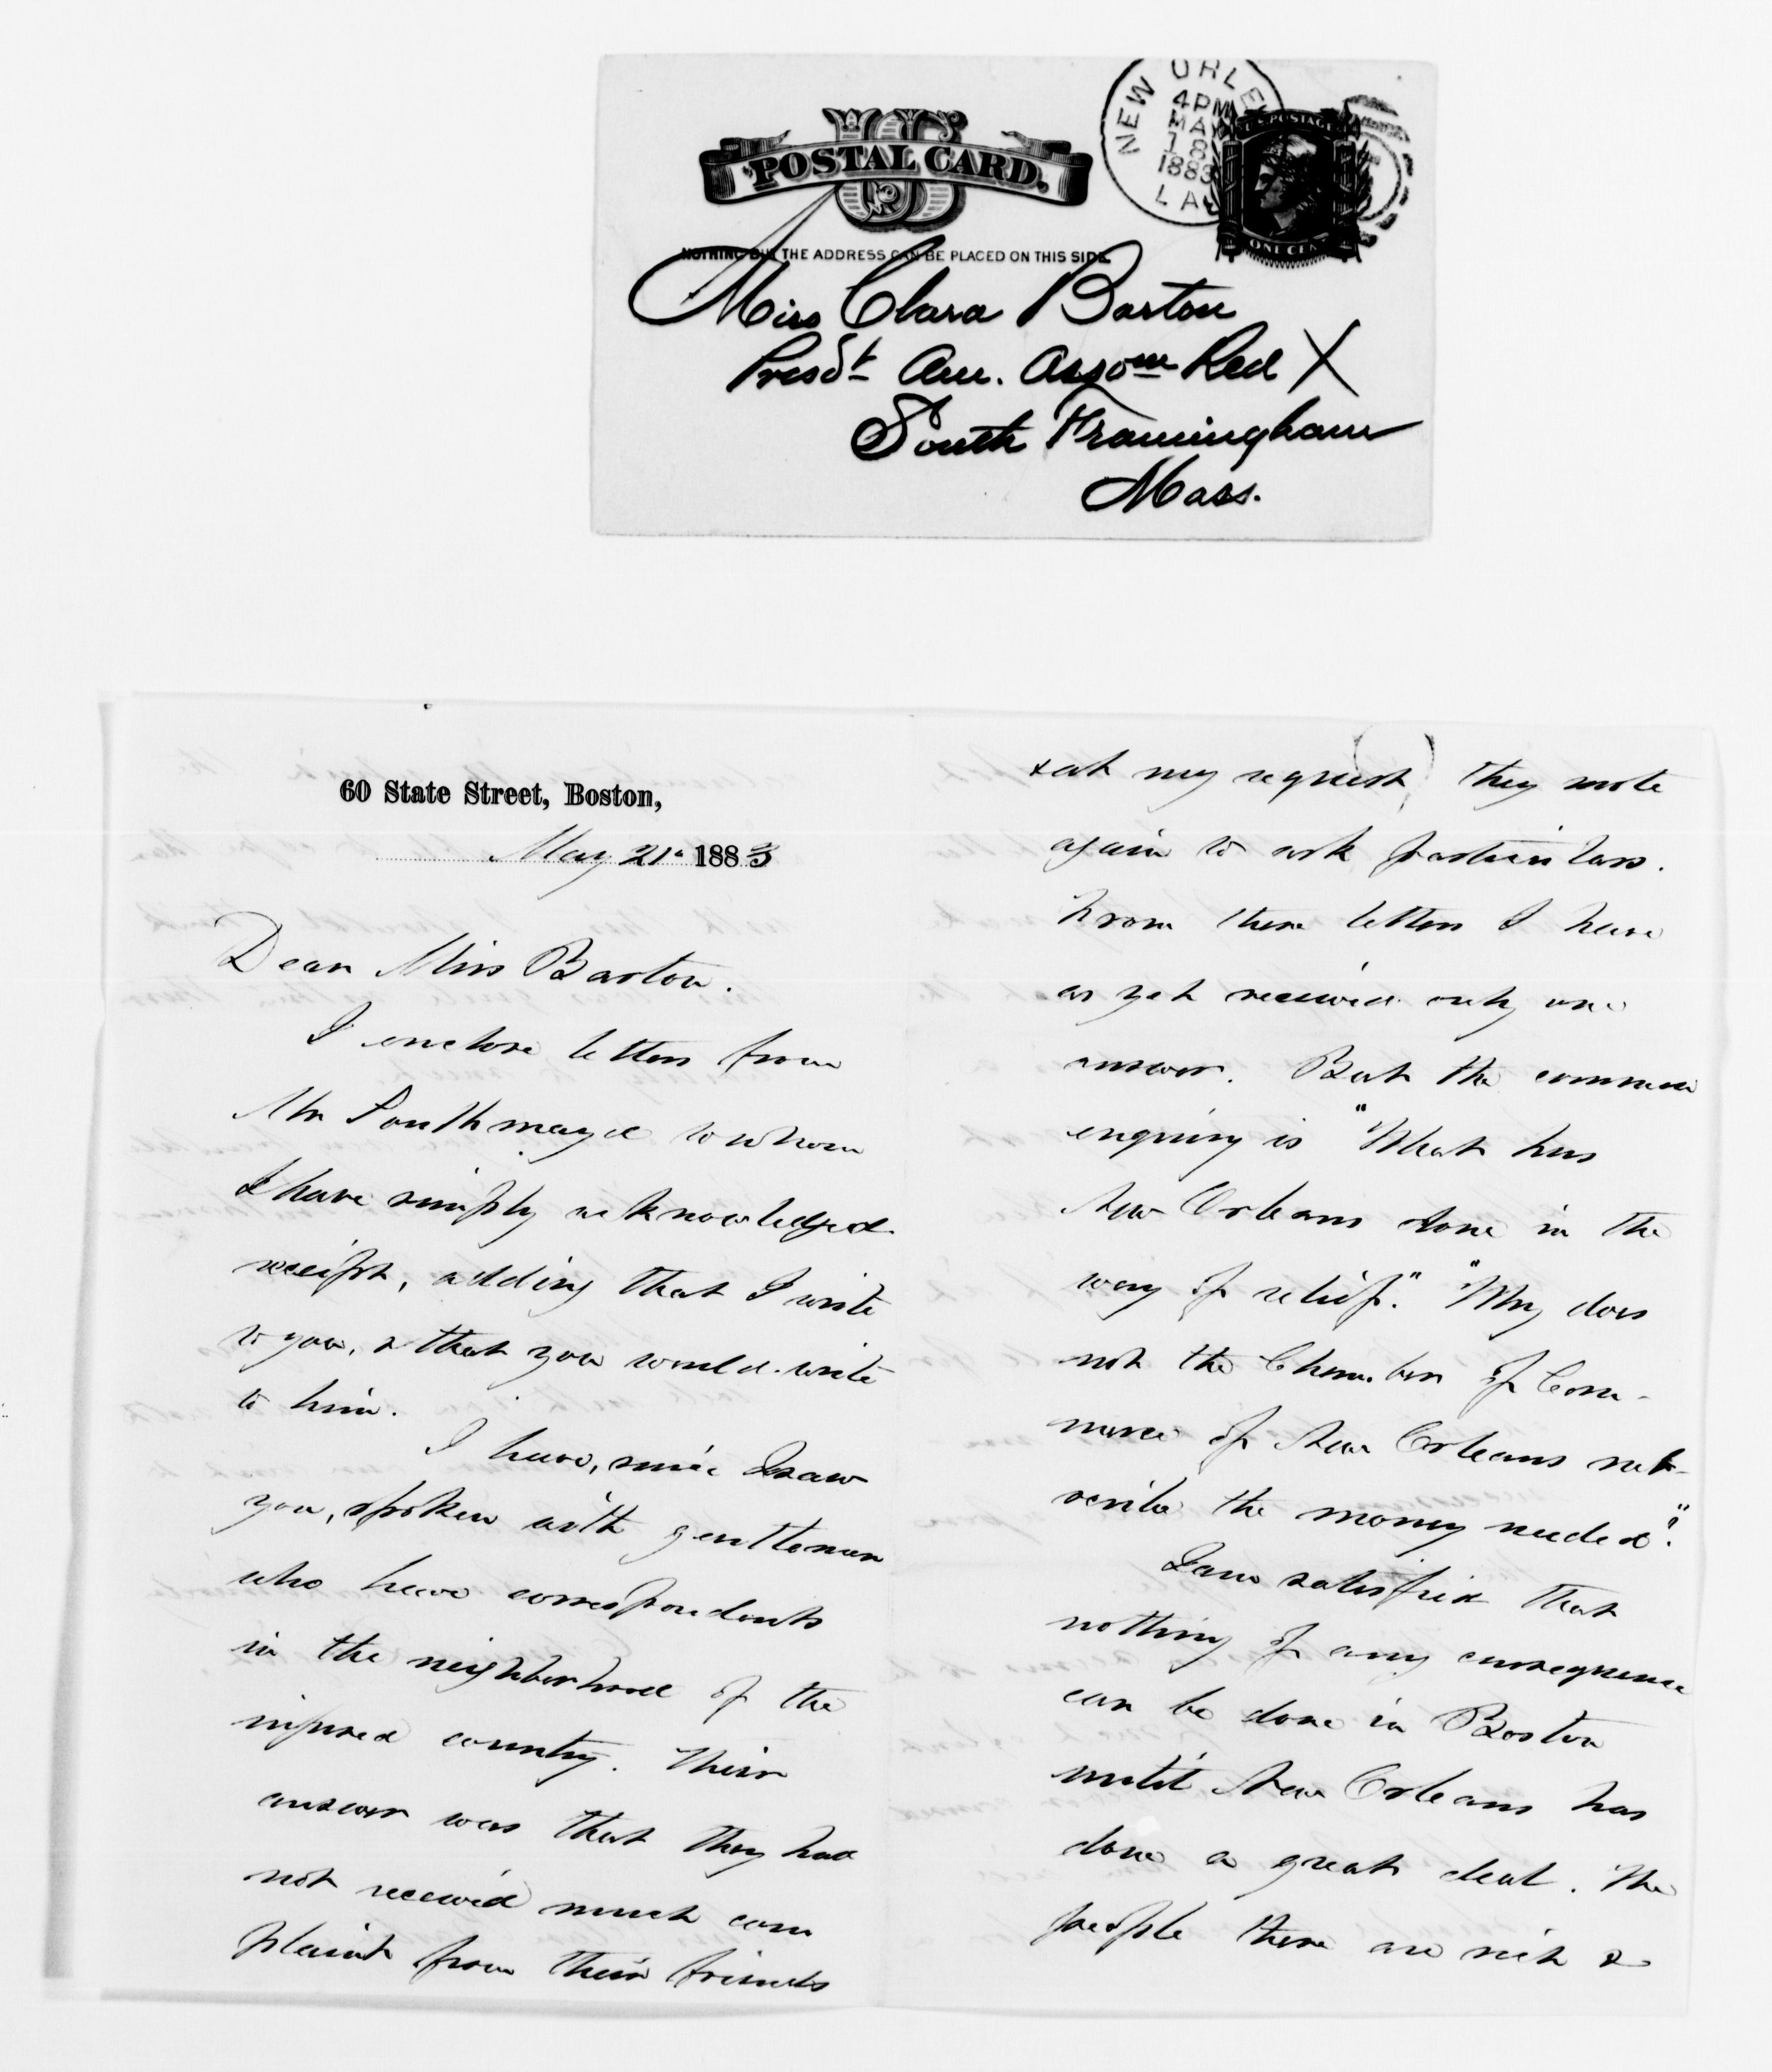 U S
POSTAL CARD.
NEW ORLE
4PM
MAY
18
1883
LA
U.S. POSTAGE
ONE CENT
NOTHING BUT THE ADDRESS CAN BE PLACED ON THIS SIDE.
Miss Clara Barton
Presdt Am. Assom Red X
South Framingham
Mass.
60 State Street, Boston,
May 21. 1883
Dear Miss Barton.
I enclose letter from
Mr Southmayd to whom
I have simply acknowledged
receipt, adding that I write
to you, & that you would write
to him.
I have, since I saw
you, spoken with gentlemen
who have correspondents
in the neighborhood of the
injured country. Their
answer was that they had
not received much com
plaint from their friends
& at my request they wrote
again to ask particulars.
From these letters I have
as yet received only one
answer. But the common
enquiry is "What has
New Orleans done in the
way of relief." "Why does
not the Chamber of Com-
merce of New Orleans sub-
scribe the money needed".
I am satisfied that
nothing of any consequence
can be done in Boston
until New Orleans has
done a great deal. The
people there are rich &